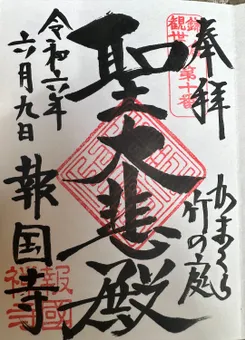 奉拝
かまくら
竹の庭
鎌倉
観世音第十番
聖大悲殿
令和六年
六月九日
報国寺
報國
禅寺